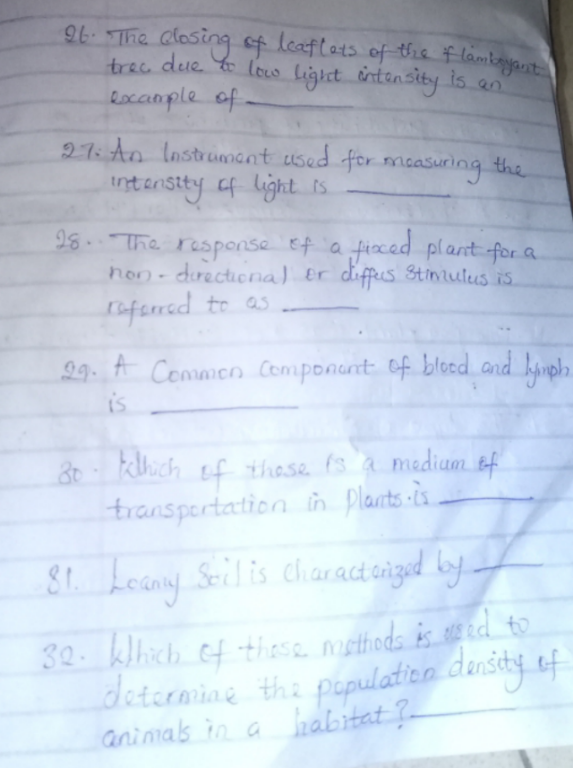 26. The closing of leaflets of the flamboyant
tree due to low light intensity is an
example of
27. An Instrument used for measuring the
intensity of light is
28. The response of a fixed plant for a
non-directional or diffus stimulus is
referred to as
29. A Common Component of blood and lymph
is
30. Which of these is a medium of
transportation in plants is
31. Loamy Soil is characterized by
32. Which of these methods is used to
determine the population density of
animals in a habitat?